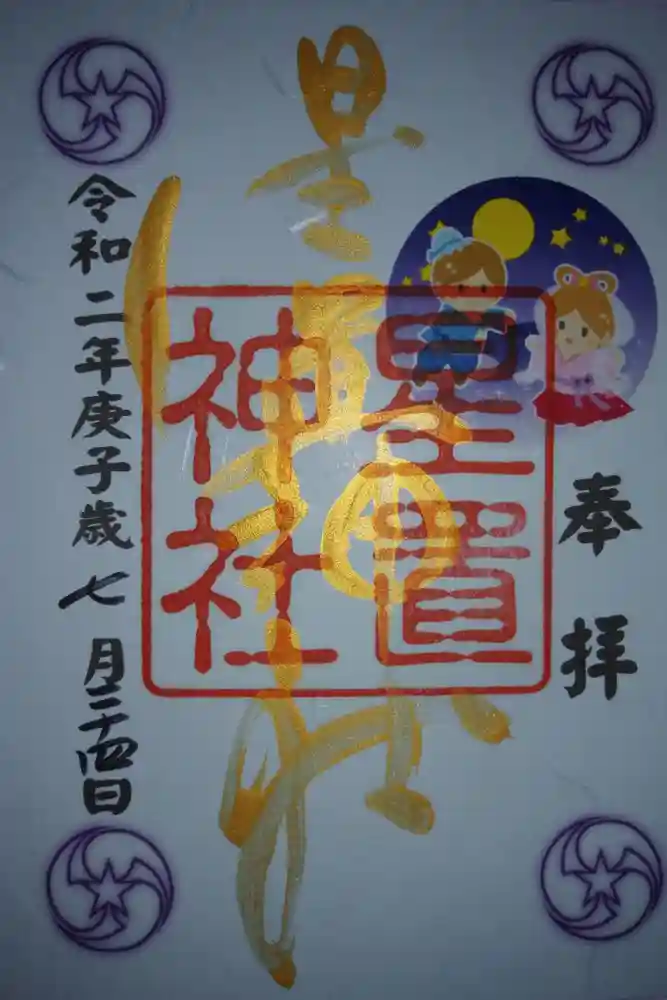 奉拝
星置神社
星置
神社
令和二年庚子歳七月二十四日